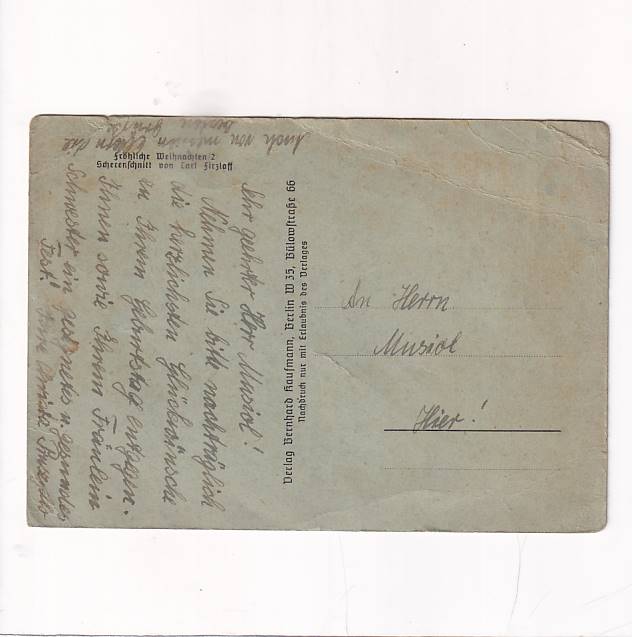 Fröhliche Weihnachten 2
Scherenschnitt von Carl Fitzlaff
Sehr geehrter Herr Musiol!
Nehmen Sie bitte nachträglich
die herzlichsten Glückwünsche
zu Ihrem Geburtstag entgegen.
Ihnen sowie Ihrem Fräulein
Schwester ein gesundes u.
Fest!
Auch von meinen Eltern die
besten Grüße
Verlag Bernhard Kaufmann, Berlin W 35, Bülowstraße 66
Nachdruck nur mit Erlaubnis des Verlages
An Herrn
Musiol
Hier!